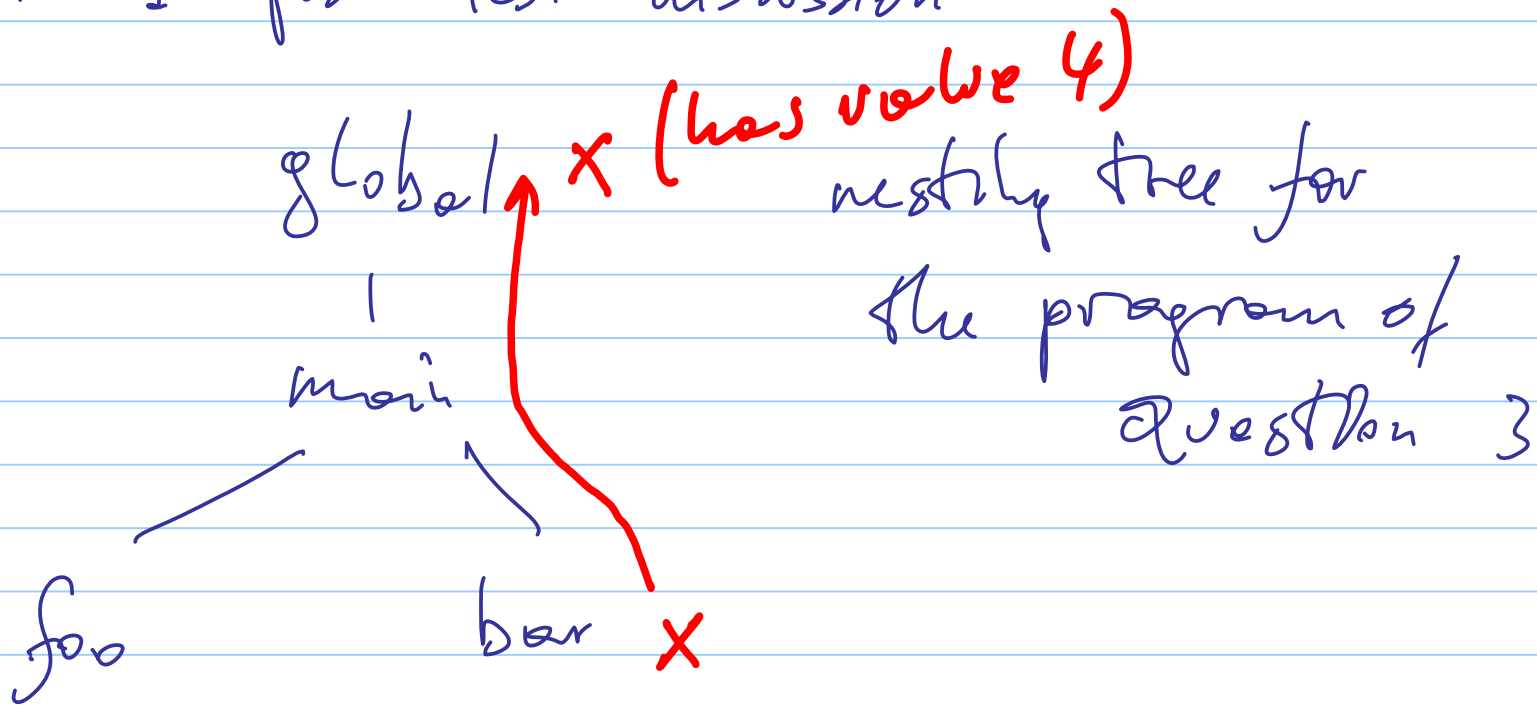 test discussion
global x (has value 4)
nesting tree for
the program of
question 3
main
foo bar x